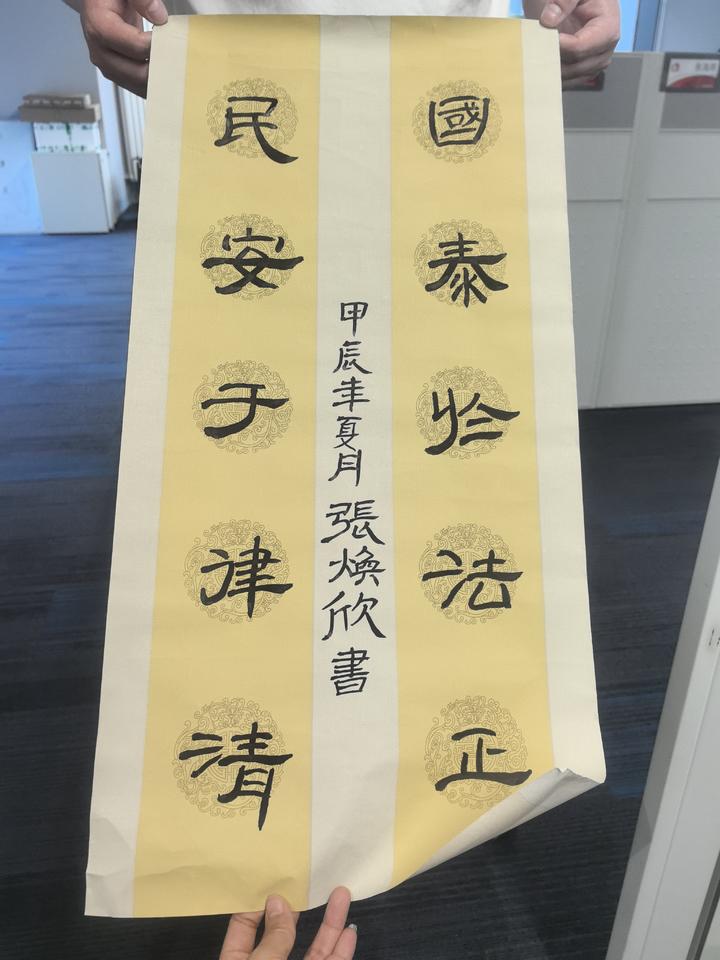 國泰於法正
民安于律清
甲辰年夏月張煥欣書